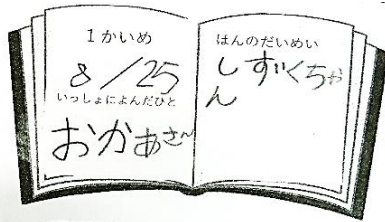 1かいめ
8/25
いっしょによんだひと
おかあさん
ほんのだいめい
しずくちゃ
ん